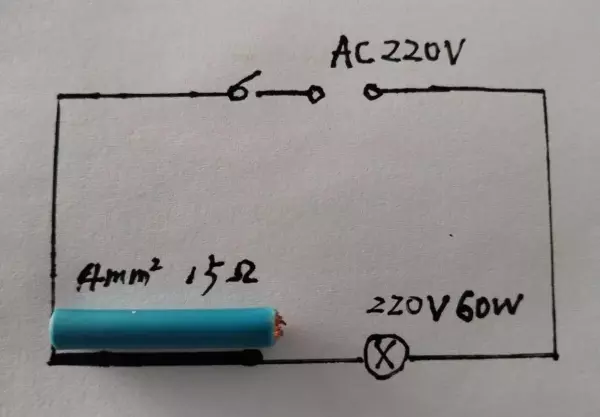 AC220V
4mm² 15Ω
220V60W